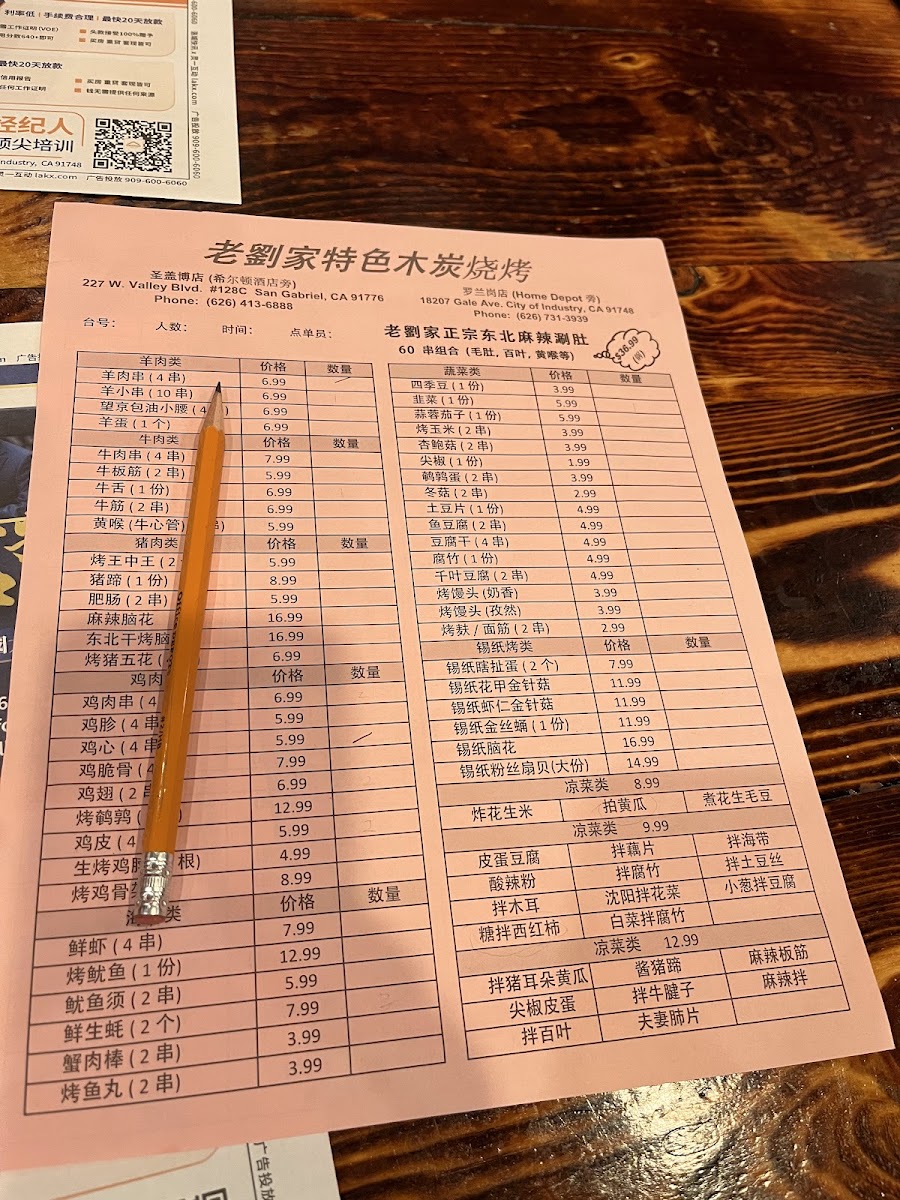 利率低 | 手续费合理 | 最快20天放款
工作证明(VOE)
头款接受100%赠予
用分数640+即可
买房 重贷 套现皆可
最快20天放款
信用报告
买房 重贷 套现皆可
任何工作证明
钱无需提供任何来源
经纪人
顶尖培训
Industry, CA 91748
一互动 lakx.com 广告投放 909-600-6060
lakx.com 广告投放 909-600-6060
老劉家特色木炭烧烤
圣盖博店 (希尔顿酒店旁)
227 W. Valley Blvd. #128C San Gabriel, CA 91776
Phone: (626) 413-6888
罗兰岗店 (Home Depot 旁)
18207 Gale Ave. City of Industry, CA 91748
Phone: (626) 731-3939
台号: 人数: 时间: 点单员:
老劉家正宗东北麻辣涮肚
60 串组合 (毛肚, 百叶, 黄喉等)
$36.99
羊肉类 价格 数量
羊肉串 (4 串) 6.99
羊小串 (10 串) 6.99
望京包油小腰 (4 6.99
羊蛋 (1 个) 6.99
牛肉类 价格 数量
牛肉串 (4 串) 7.99
牛板筋 (2 串) 5.99
牛舌 (1 份) 6.99
牛筋 (2 串) 6.99
黄喉 (牛心管) 串) 5.99
猪肉类 价格 数量
烤王中王 (2 5.99
猪蹄 (1 份) 8.99
肥肠 (2 串) 5.99
麻辣脑花 16.99
东北干烤脑 16.99
烤猪五花 ( 6.99
鸡肉 价格 数量
鸡肉串 (4 6.99
鸡胗 (4 串 5.99
鸡心 (4 串 5.99
鸡脆骨 (4 7.99
鸡翅 (2 6.99
烤鹌鹑 12.99
鸡皮 (4 5.99
生烤鸡 根) 4.99
烤鸡骨 8.99
类 价格 数量
鲜虾 (4 串) 7.99
烤鱿鱼 (1 份) 12.99
鱿鱼须 (2 串) 5.99
鲜生蚝 (2 个) 7.99
蟹肉棒 (2 串) 3.99
烤鱼丸 (2 串) 3.99
蔬菜类 价格 数量
四季豆 (1 份) 3.99
韭菜 (1 份) 5.99
蒜蓉茄子 (1 份) 5.99
烤玉米 (2 串) 3.99
杏鲍菇 (2 串) 3.99
尖椒 (1 份) 1.99
鹌鹑蛋 (2 串) 3.99
冬菇 (2 串) 2.99
土豆片 (1 份) 4.99
鱼豆腐 (2 串) 4.99
豆腐干 (4 串) 4.99
腐竹 (1 份) 4.99
千叶豆腐 (2 串) 4.99
烤馒头 (奶香) 3.99
烤馒头 (孜然) 3.99
烤麸 / 面筋 (2 串) 2.99
锡纸烤类 价格 数量
锡纸瞎扯蛋 (2 个) 7.99
锡纸花甲金针菇 11.99
锡纸虾仁金针菇 11.99
锡纸金丝蛹 (1 份) 11.99
锡纸脑花 16.99
锡纸粉丝扇贝(大份) 14.99
凉菜类 8.99
炸花生米 拍黄瓜 煮花生毛豆
凉菜类 9.99
皮蛋豆腐 拌藕片 拌海带
酸辣粉 拌腐竹 拌土豆丝
拌木耳 沈阳拌花菜 小葱拌豆腐
糖拌西红柿 白菜拌腐竹
凉菜类 12.99
拌猪耳朵黄瓜 酱猪蹄 麻辣板筋
尖椒皮蛋 拌牛腱子 麻辣拌
拌百叶 夫妻肺片
广告投放